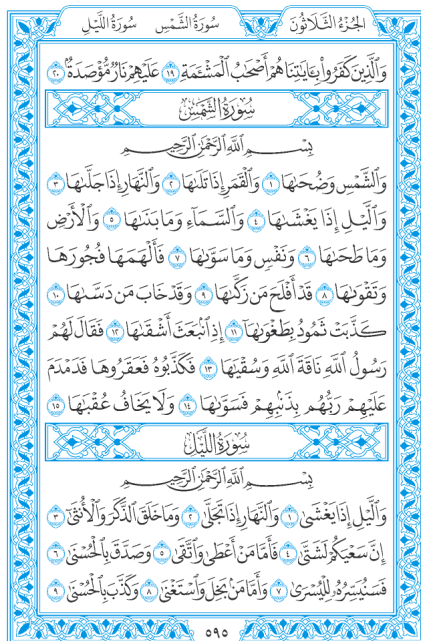 الجُزْءُ الثَّلَاثُونَ سُورَةُ الشَّمْسِ سُورَةُ اللَّيْلِ
وَٱلَّذِينَ كَفَرُوا۟ بِـَٔايَٰتِنَا هُمْ أَصْحَٰبُ ٱلْمَشْـَٔمَةِ ١٩ عَلَيْهِمْ نَارٌ مُّؤْصَدَةٌۢ ٢٠
سُورَةُ الشَّمْسِ
بِسْمِ ٱللَّهِ ٱلرَّحْمَٰنِ ٱلرَّحِيمِ
وَٱلشَّمْسِ وَضُحَىٰهَا ١ وَٱلْقَمَرِ إِذَا تَلَىٰهَا ٢ وَٱلنَّهَارِ إِذَا جَلَّىٰهَا ٣
وَٱلَّيْلِ إِذَا يَغْشَىٰهَا ٤ وَٱلسَّمَآءِ وَمَا بَنَىٰهَا ٥ وَٱلْأَرْضِ
وَمَا طَحَىٰهَا ٦ وَنَفْسٍ وَمَا سَوَّىٰهَا ٧ فَأَلْهَمَهَا فُجُورَهَا
وَتَقْوَىٰهَا ٨ قَدْ أَفْلَحَ مَن زَكَّىٰهَا ٩ وَقَدْ خَابَ مَن دَسَّىٰهَا ١٠
كَذَّبَتْ ثَمُودُ بِطَغْوَىٰهَآ ١١ إِذِ ٱنۢبَعَثَ أَشْقَىٰهَا ١٢ فَقَالَ لَهُمْ
رَسُولُ ٱللَّهِ نَاقَةَ ٱللَّهِ وَسُقْيَٰهَا ١٣ فَكَذَّبُوهُ فَعَقَرُوهَا فَدَمْدَمَ
عَلَيْهِمْ رَبُّهُم بِذَنۢبِهِمْ فَسَوَّىٰهَا ١٤ وَلَا يَخَافُ عُقْبَٰهَا ١٥
سُورَةُ اللَّيْلِ
بِسْمِ ٱللَّهِ ٱلرَّحْمَٰنِ ٱلرَّحِيمِ
وَٱلَّيْلِ إِذَا يَغْشَىٰ ١ وَٱلنَّهَارِ إِذَا تَجَلَّىٰ ٢ وَمَا خَلَقَ ٱلذَّكَرَ وَٱلْأُنثَىٰٓ ٣
إِنَّ سَعْيَكُمْ لَشَتَّىٰ ٤ فَأَمَّا مَنْ أَعْطَىٰ وَٱتَّقَىٰ ٥ وَصَدَّقَ بِٱلْحُسْنَىٰ ٦
فَسَنُيَسِّرُهُۥ لِلْيُسْرَىٰ ٧ وَأَمَّا مَنۢ بَخِلَ وَٱسْتَغْنَىٰ ٨ وَكَذَّبَ بِٱلْحُسْنَىٰ ٩
٥٩٥